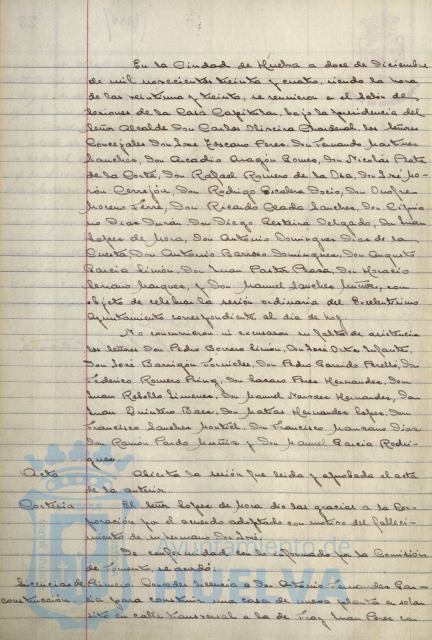 En la Ciudad de Huelva a doce de Diciembre
de mil novecientos treinta y cuatro, siendo la hora
de las veintiuna y treinta, se reunieron en el Salón de
sesiones de la Casa Capitular, bajo la presidencia del
Señor Alcalde Don Carlos Oliveira Chardenal, los señores
Concejales Don José Toscano Perez, Don Fernando Martinez
Sanchez, Don Arcadio Aragón Gomez, Don Nicolás Plata
de la Corte, Don Rafael Romero de la Osa, Don José Mo-
rón Cerrejón, Don Rodrigo Socio, Don Onofre
Moreno Ferré, Don Ricardo Sanchez, Don
Diaz Durán, Don Diego Delgado, Don Juan
Lopez de Mora, Don Antonio Dominguez Diaz de la
Cuesta, Don Antonio Barroso Dominguez, Don Augusto
Garcia Simón, Don Juan Pastor, Don Horacio
Marquez, y Don Manuel Sanchez Muñoz, con
objeto de celebrar la sesión ordinaria del Excelentísimo
Ayuntamiento correspondiente al día de hoy
No concurrieron ni excusaron su falta de asistencia
los señores Don Pedro Borrero Limón, Don José Orta Infante,
Don José Barrigón Fornieles, Don Pedro Garrido Perelló, Don
Federico Romero, Don Lazaro Perez Hernandez, Don
Juan Rebollo Jimenez, Don Manuel Narvaez Hernandez, Don
Juan Quintero Baez, Don Matías Hernandez Lopez, Don
Francisco Sanchez, Don Francisco Manzano Diaz
Don Ramón Pardo Muñiz y Don Manuel Garcia Rodri-
guez
Acta Abierta la sesión fue leida y aprobada el acta
de la anterior.
Cortesía El señor Lopez de Mora dio las gracias a la Cor-
poración por el acuerdo adoptado con motivo del falleci-
miento de su hermano Don José.
De conformidad con lo informado por la Comisión
de Fomento, se acordó:
Licencias de Primero. Conceder licencia a Don Antonio Fernandez Gar-
construcción cia para construir una casa de nueva planta en solar
sito en calle transversal a la de Fray Juan Perez con
Ayuntamiento de
HUELVA